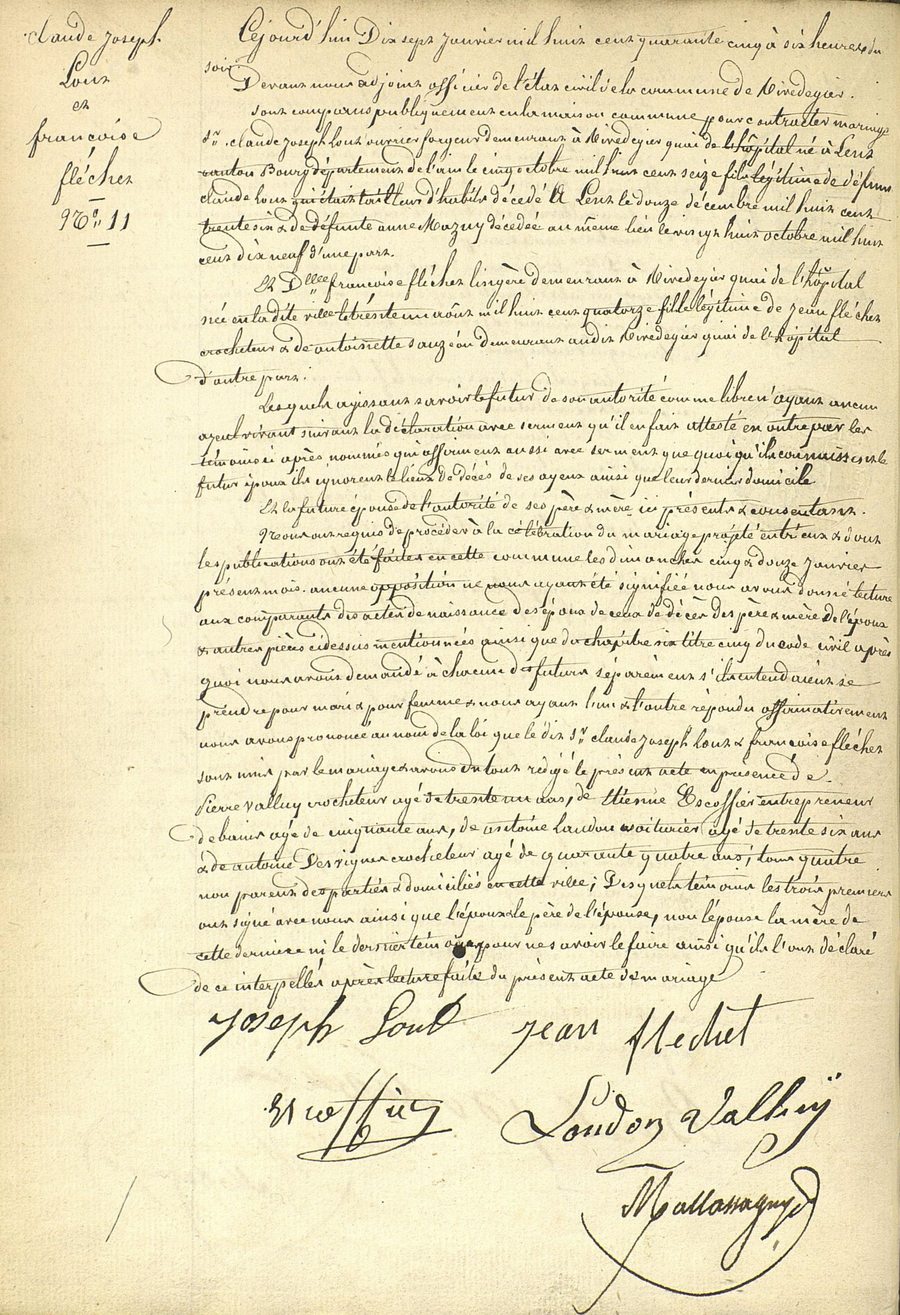 claude Joseph
Lout
et
francoise
fléchet
No. 11
Cejourd'hui Dix sept Janvier mil huit cent quarante cinq à six heures du
soir
Devant nous adjoint officier de l'état civil de la commune de Rivedegier.
sont comparus publiquement en la maison commune pour contracter mariage
sr. claude Joseph Lout ouvrier forgeur demeurant à Rivedegier quai de l'hôpital né à Lent
canton Bourg département de l'ain le cinq octobre mil huit cent seize fils légitime de défunt
claude Lout qui était tailleur d'habits décédé à Lent le douze décembre mil huit cent
trente six & de défunte anne Mazuy décédée au même lieu le vingt huit octobre mil huit
cent dix neuf d'une part.
Et Dlle francoise fléchet lingère demeurant à Rivedegier quai de l'hôpital
née en la dite ville le trente un août mil huit cent quatorze fille légitime de Jean fléchet
crocheteur & de antoinette sauzéon demeurant audit Rivedegier quai de l'hôpital
d'autre part.
Lesquels agissant savoir le futur de son autorité comme libre n'ayant aucun
ayeul vivant suivant la déclaration avec serment qu'il en fait attesté en outre par les
témoins ci après nommés qui affirment aussi avec serment que quoiqu'ils connaissent le
futur époux ils ignorent le lieux de décès de ses ayeux ainsi que leur dernier domicile
Et la future épouse de l'autorité de ses père & mère ici présents & consentant.
Nous ont requis de procéder à la célébration du mariage projété entr'eux & dont
les publications ont été faites en cette commune les dimanches cinq & douze Janvier
présent mois. aucune opposition ne nous ayant été signifiée nous avons donné lecture
aux comparants des actes de naissance des époux de ceux de décès des père & mère de l'époux
& autres pièces cidessus mentionnées ainsi que du chapitre six titre cinq du code civil après
quoi nous avons demandé à chacun des futurs séparément s'ils entendaient se
prendre pour mari & pour femme & nous ayant l'un & l'autre répondu affirmativement
nous avons prononcé au nom de la loi que le dit sr. claude Joseph Lout & francoise fléchet
sont unis par le mariage & avons du tout rédigé le présent acte en présence de
Pierre Valluy crocheteur agé de trente un ans, de Etienne Escoffier entrepreneur
de bains agé de cinquante ans, de antoine Laudon voiturier agé de trente six ans
& de antoine Desvignes crocheteur agé de quarante quatre ans, tous quatre
non parents des parties & domiciliés en cette ville; Desquels témoins les trois premiers
ont signé avec nous ainsi que l'époux & le père de l'épouse, non l'épouse la mère de
cette dernière ni le dernier témoin pour ne savoir le faire ainsi qu'ils l'ont déclaré
de ce interpellés après lecture faite du présent acte de mariage
Joseph Lout Jean flechet
Escoffier Loudon Valluÿ